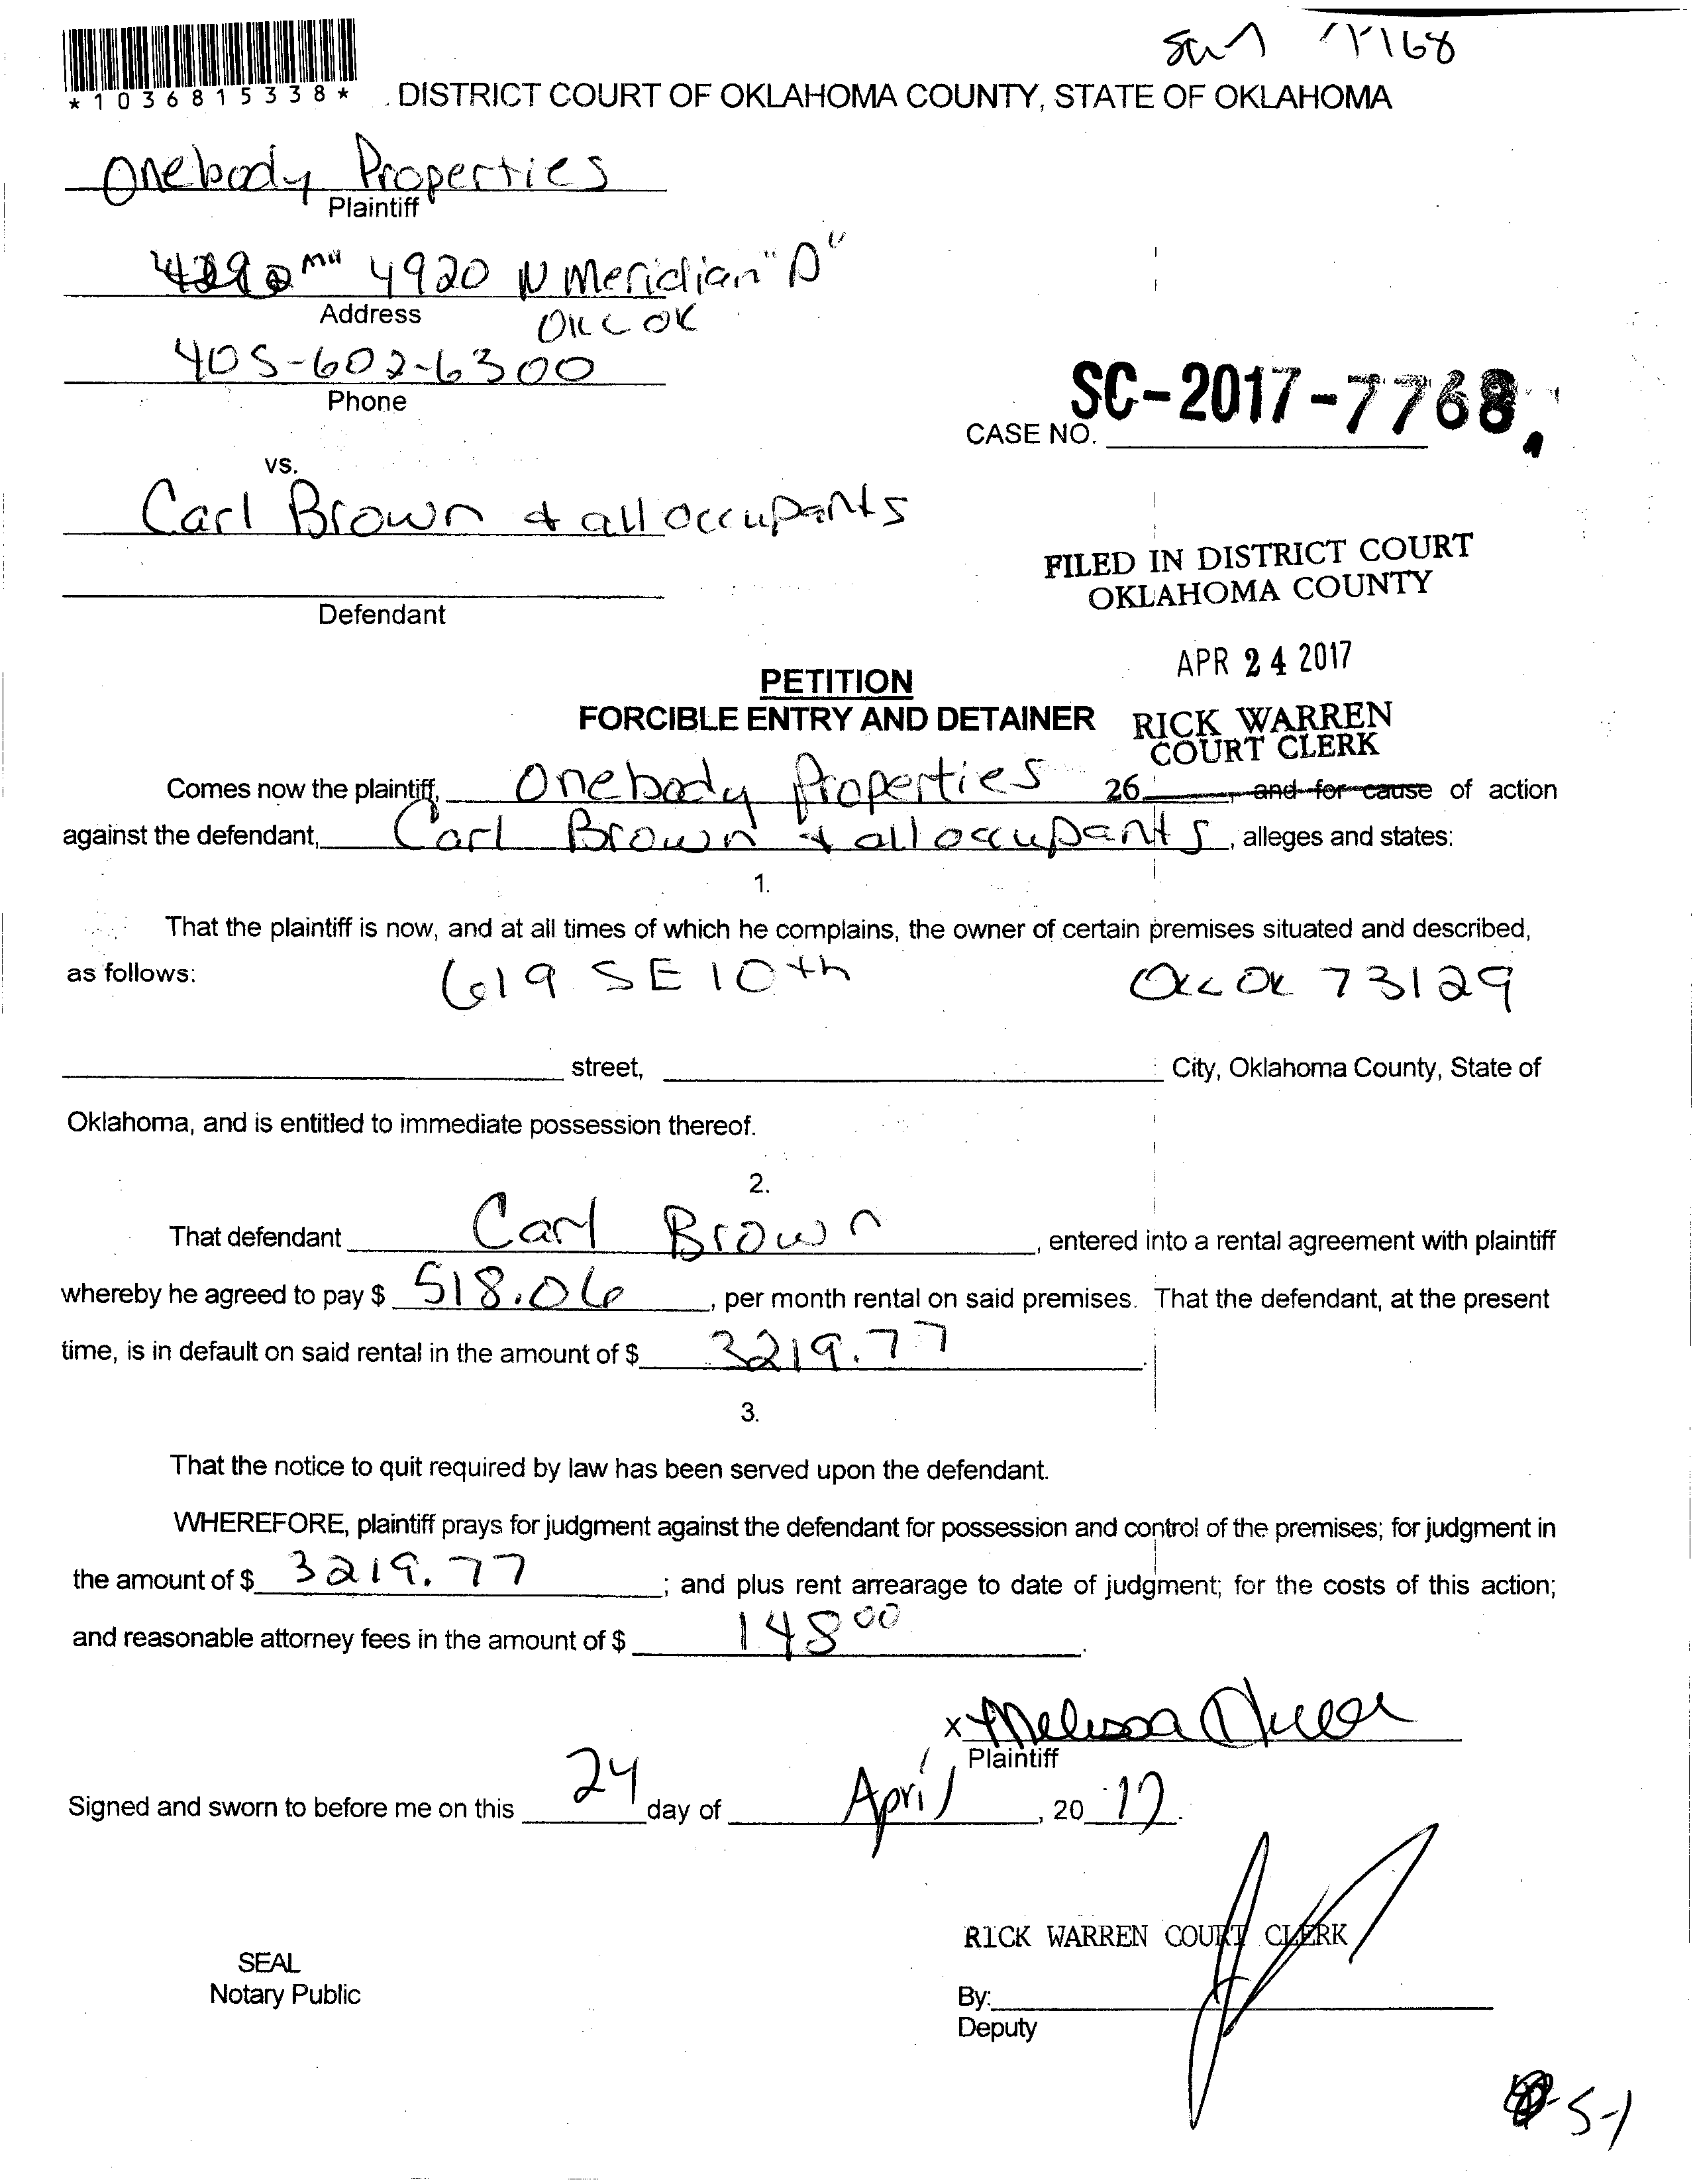 *1036815338*
DISTRICT COURT OF OKLAHOMA COUNTY, STATE OF OKLAHOMA
Onebody Properties
Plaintiff
4920 N Meridian "D"
Address
OKC OK
405-602-6300
Phone
SC-2017-7768
CASE NO.
vs.
Carl Brown & all occupants
FILED IN DISTRICT COURT
OKLAHOMA COUNTY
Defendant
APR 24 2017
PETITION
FORCIBLE ENTRY AND DETAINER
RICK WARREN
COURT CLERK
Comes now the plaintiff, Onebody Properties 26 , and for cause of action
against the defendant, Carl Brown & all occupants, alleges and states:
1.
That the plaintiff is now, and at all times of which he complains, the owner of certain premises situated and described,
as follows: 619 SE 10th OKC OK 73129
street, City, Oklahoma County, State of
Oklahoma, and is entitled to immediate possession thereof.
2.
That defendant Carl Brown, entered into a rental agreement with plaintiff
whereby he agreed to pay $ 518.06, per month rental on said premises. That the defendant, at the present
time, is in default on said rental in the amount of $ 3219.77.
3.
That the notice to quit required by law has been served upon the defendant.
WHEREFORE, plaintiff prays for judgment against the defendant for possession and control of the premises; for judgment in
the amount of $ 3219.77; and plus rent arrearage to date of judgment; for the costs of this action;
and reasonable attorney fees in the amount of $ 148 00.
x Melissa
Plaintiff
Signed and sworn to before me on this 24 day of April, 20 17.
RICK WARREN COURT CLERK
SEAL
Notary Public
By:
Deputy
5-1